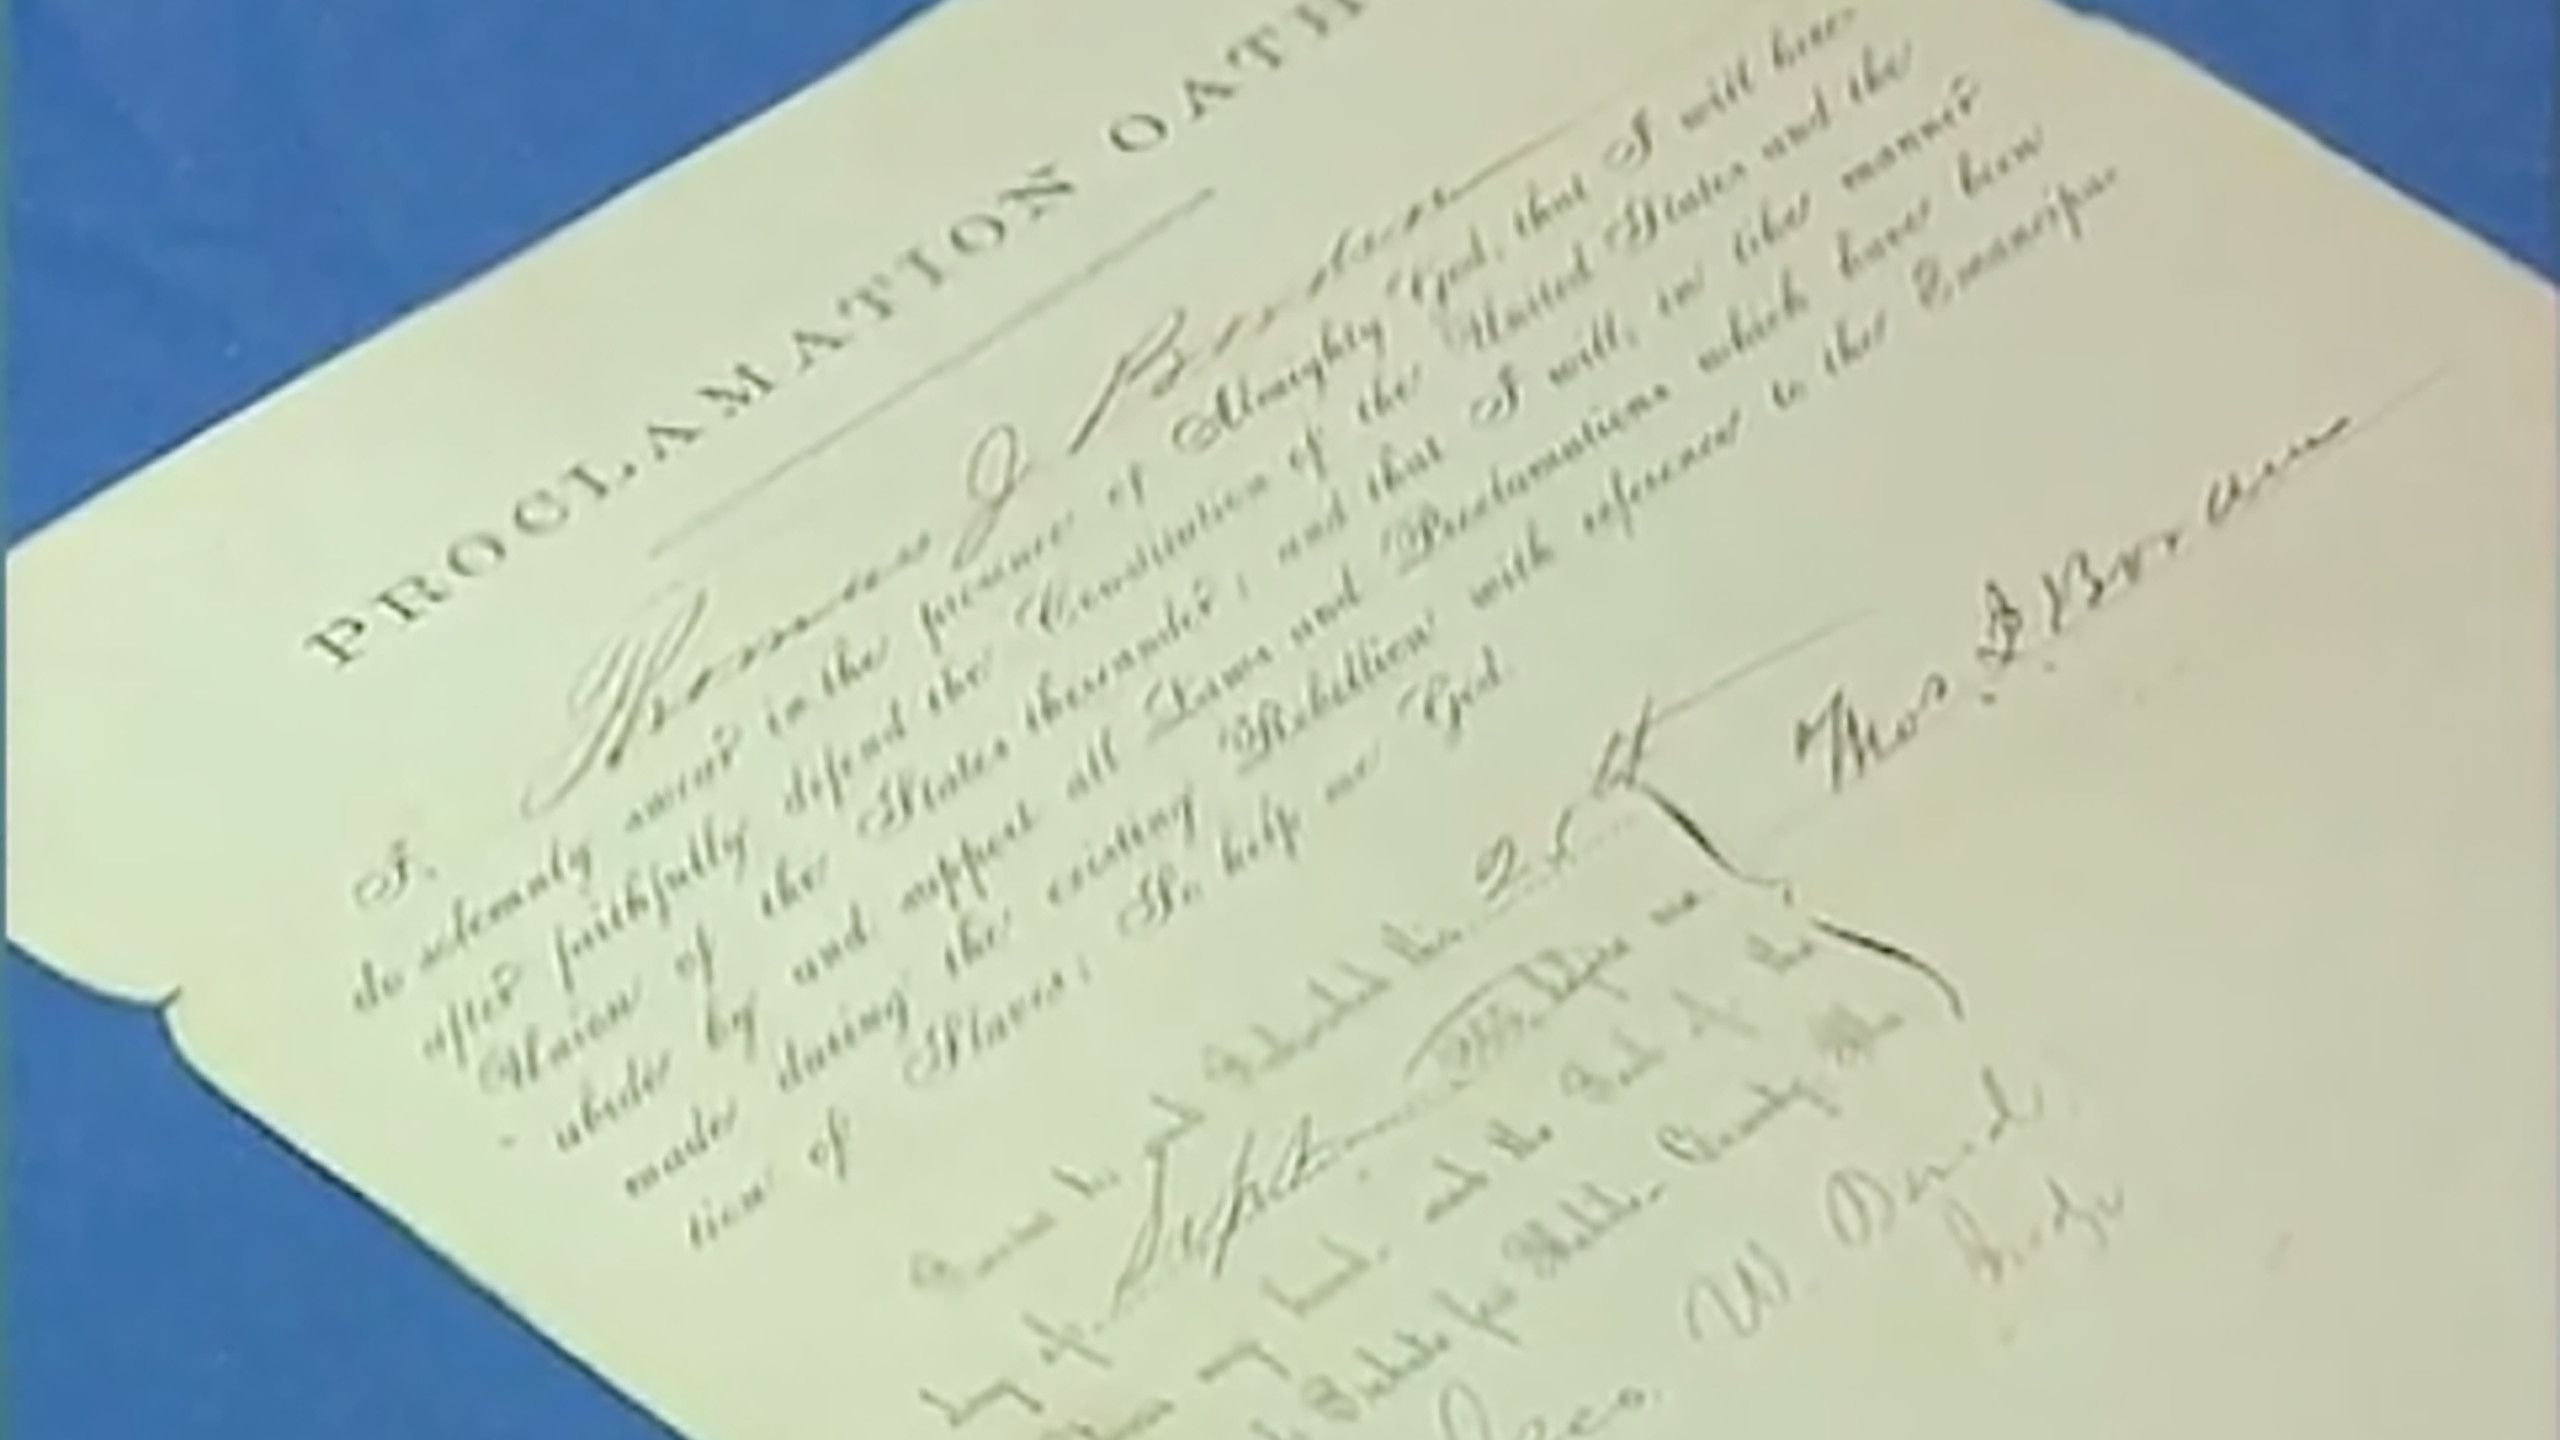 PROCLAMATION OATH
I, Thomas J
do solemnly swear in the presence of Almighty God, that I will here-
after faithfully defend the Constitution of the United States and the
Union of the States thereunder; and that I will, in like manner
abide by and support all Laws and Proclamations which have been
made during the existing Rebellion with reference to the Emancipa-
tion of Slaves; So help me God.
Thos
and Subscribed this 25
day of Sept before me
hand and the Seal of the
Probate for County
Geo. W.
Judge